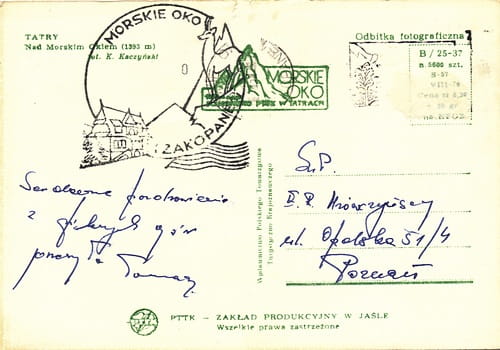 TATRY
Nad Morskim Okiem (1393 m)
fot. K. Kaczyński
MORSKIE OKO
ZAKOPANE
0
MORSKIE
OKO
SCHRONISKO PTTK W TATRACH
Odbitka fotograficzna
B / 25-37
n. 5600 szt.
S-57
VIII-70
Cena zł
gr
Serdeczne pozdrowienia
z pięknych gór
przesyła Tomasz
Wydawnictwo Polskiego Towarzystwa
Turystyczno Krajoznawczego
Sz.P.
ul. Opolska 51/4
Poznań
PTTK – ZAKŁAD PRODUKCYJNY W JAŚLE
Wszelkie prawa zastrzeżone